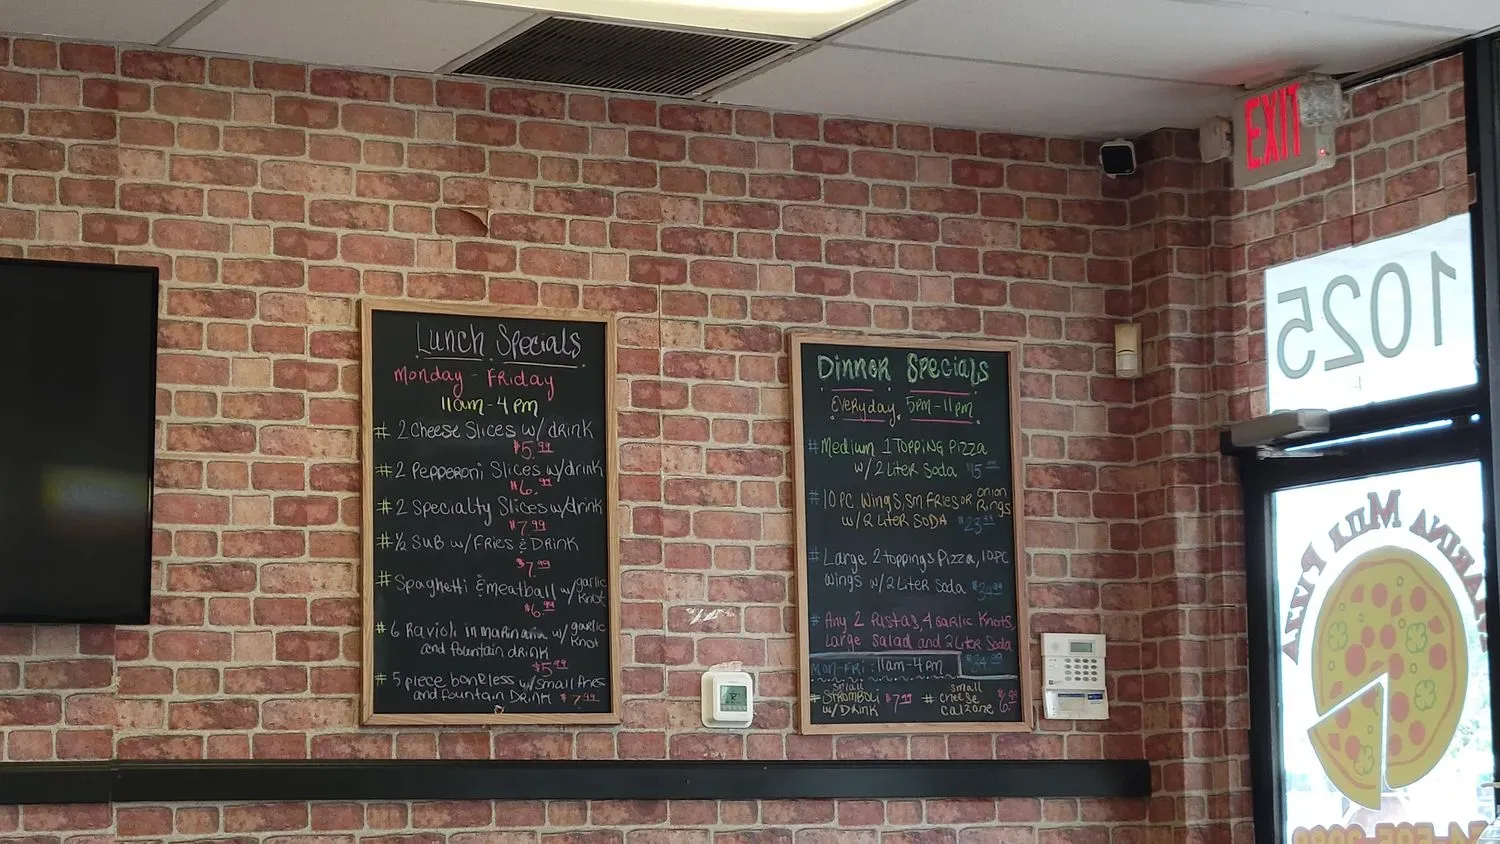 Lunch Specials
Monday - Friday
11am - 4pm
# 2 Cheese Slices w/ drink
$5.99
# 2 Pepperoni Slices w/drink
$6.99
# 2 Specialty Slices w/drink
$7.99
# 1/2 Sub w/ Fries & Drink
$7.99
# Spaghetti & meatball w/ garlic knot
$6.99
# 6 Ravioli in marinara w/ garlic knot
and fountain drink
$5.99
# 5 piece boneless w/ small fries
and fountain Drink $7.99
Dinner Specials
Everyday, 5pm - 11pm
# Medium 1 Topping Pizza
w/ 2 Liter Soda
# 10 PC Wings, sm Fries or onion Rings
w/ 2 Liter SODA $23.99
# Large 2 toppings Pizza, 10-PC
wings w/ 2 Liter Soda $34.99
# Any 2 Pastas, 4 Garlic Knots,
Large salad and 2 Liter Soda
$34.99
Mon-Fri: 11am - 4pm
# small Stromboli w/ Drink $7.99
# small cheese calzone $6.99
EXIT
1025
MARINA MILA PIZZA